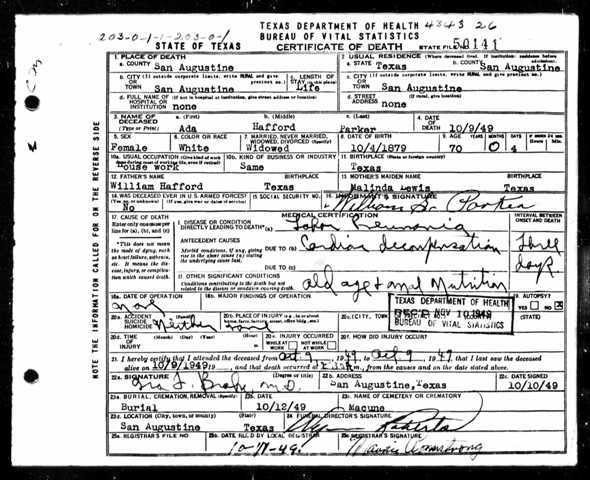 203-0-1-1-203-0-1
TEXAS DEPARTMENT OF HEALTH 4343 26
BUREAU OF VITAL STATISTICS
STATE OF TEXAS CERTIFICATE OF DEATH STATE FILE NO. 50141
1. PLACE OF DEATH 2. USUAL RESIDENCE (Where deceased lived. If institution: residence before admission).
a. COUNTY San Augustine a. STATE Texas b. COUNTY San Augustine
b. CITY (If outside corporate limits, write RURAL and give precinct no.) c. LENGTH OF STAY (in this place) c. CITY (If outside corporate limits, write RURAL and give precinct no.)
OR TOWN San Augustine Life OR TOWN San Augustine
d. FULL NAME OF (If not in hospital or institution, give street address or location) d. STREET (If rural, give location)
HOSPITAL OR INSTITUTION none ADDRESS none
3. NAME OF DECEASED a. (First) b. (Middle) c. (Last) 4. DATE OF DEATH
Ada Hafford Parker 10/9/49
5. SEX 6. COLOR OR RACE 7. MARRIED, NEVER MARRIED, WIDOWED, DIVORCED (Specify) 8. DATE OF BIRTH 9. AGE YEARS MONTHS DAYS
Female White Widowed 10/4/1879 70 0 4
10a. USUAL OCCUPATION (Give kind of work done during most of working life, even if retired) 10b. KIND OF BUSINESS OR INDUSTRY 11. BIRTHPLACE (State or foreign country)
House work Same Texas
12. FATHER'S NAME BIRTHPLACE 13. MOTHER'S MAIDEN NAME BIRTHPLACE
William Hafford Texas Malinda Lewis Texas
14. WAS DECEASED EVER IN U.S. ARMED FORCES? 15. SOCIAL SECURITY NO. 16. INFORMANT'S SIGNATURE
(Yes, no, or unknown) (If yes, give war or dates of service)
No William G. Parker
17. CAUSE OF DEATH MEDICAL CERTIFICATION INTERVAL BETWEEN ONSET AND DEATH
Enter only one cause per line for (a), (b), and (c)
I. DISEASE OR CONDITION DIRECTLY LEADING TO DEATH* (a) Lobar Pneumonia
*This does not mean the mode of dying, such as heart failure, asthenia, etc. It means the disease, injury, or complication which caused death.
ANTECEDENT CAUSES
Morbid conditions, if any, giving rise to the above cause (a) stating the underlying cause last.
DUE TO (b) Cardiac decompensation Three days
DUE TO (c)
II. OTHER SIGNIFICANT CONDITIONS
Conditions contributing to the death but not related to the disease or condition causing death.
old age and mal Nutrition
18a. DATE OF OPERATION 18b. MAJOR FINDINGS OF OPERATION 19. AUTOPSY?
YES NO
TEXAS DEPARTMENT OF HEALTH
REC'D NOV 10 1949
BUREAU OF VITAL STATISTICS
20a. ACCIDENT SUICIDE HOMICIDE 20b. PLACE OF INJURY (e.g., in or about home, farm, factory, street, office bldg., etc.) 20c. (CITY, TOWN (STATE)
Neither
20d. TIME OF INJURY 20e. INJURY OCCURRED 20f. HOW DID INJURY OCCUR?
WHILE AT WORK NOT WHILE AT WORK
21. I hereby certify that I attended the deceased from Oct. 9, 1949, Oct 9, 1949, that I last saw the deceased
alive on 10/9/1949 and that death occurred at m., from the causes and on the date stated above.
22a. SIGNATURE (Degree or title) 22b. ADDRESS 22c. DATE SIGNED
M.D. San Augustine, Texas 10/10/49
23a. BURIAL, CREMATION, REMOVAL (Specify) 23b. DATE 23c. NAME OF CEMETERY OR CREMATORY
Burial 10/12/49 Macune
23d. LOCATION (City, town, or county) (State) 24. FUNERAL DIRECTOR'S SIGNATURE
San Augustine Texas
25a. REGISTRAR'S FILE NO 25b. DATE REC'D BY LOCAL REGISTRAR 25c. REGISTRAR'S SIGNATURE
10-11-49 Armstrong
NOTE THE INFORMATION CALLED FOR ON THE REVERSE SIDE